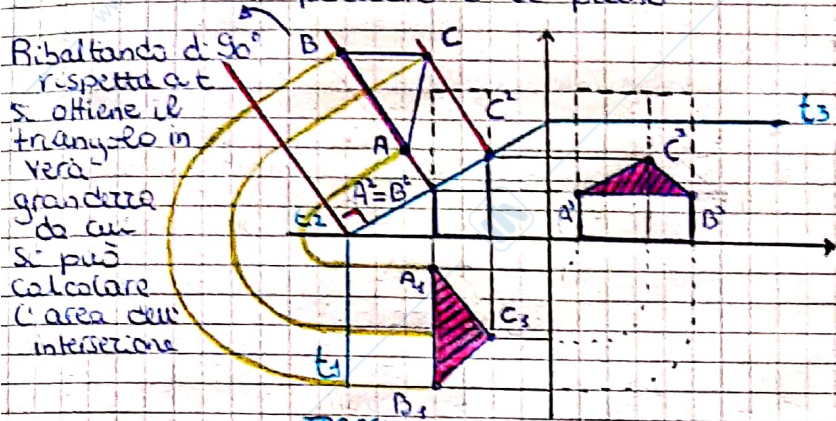 Ribaltando di 90°
rispetto a t
si ottiene il
triangolo in
verà
grandezza
da cui
si può
calcolare
l'area dell'
intersezione
B
C
A
C²
A²=B²
t2
t3
C³
A³
B³
A1
C3
t1
B1